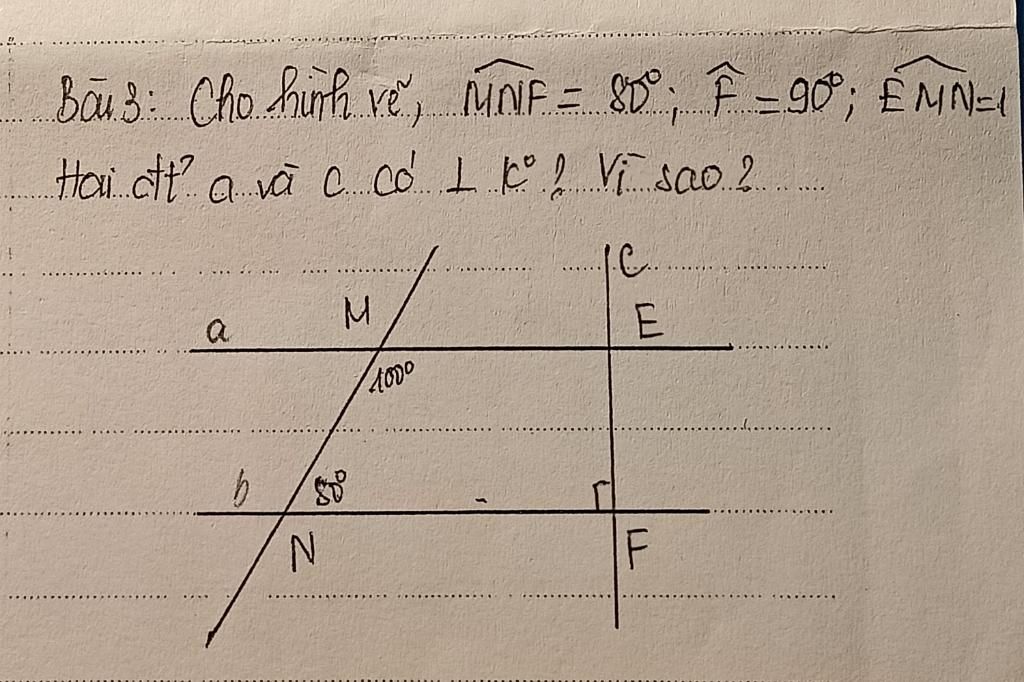 Bài 3: Cho hình vẽ, MNF = 80°; F = 90°; EMN=1
Hai đt² a và c có ⊥ k°? Vì sao?
c
M
E
a
100°
b
80°
N
F